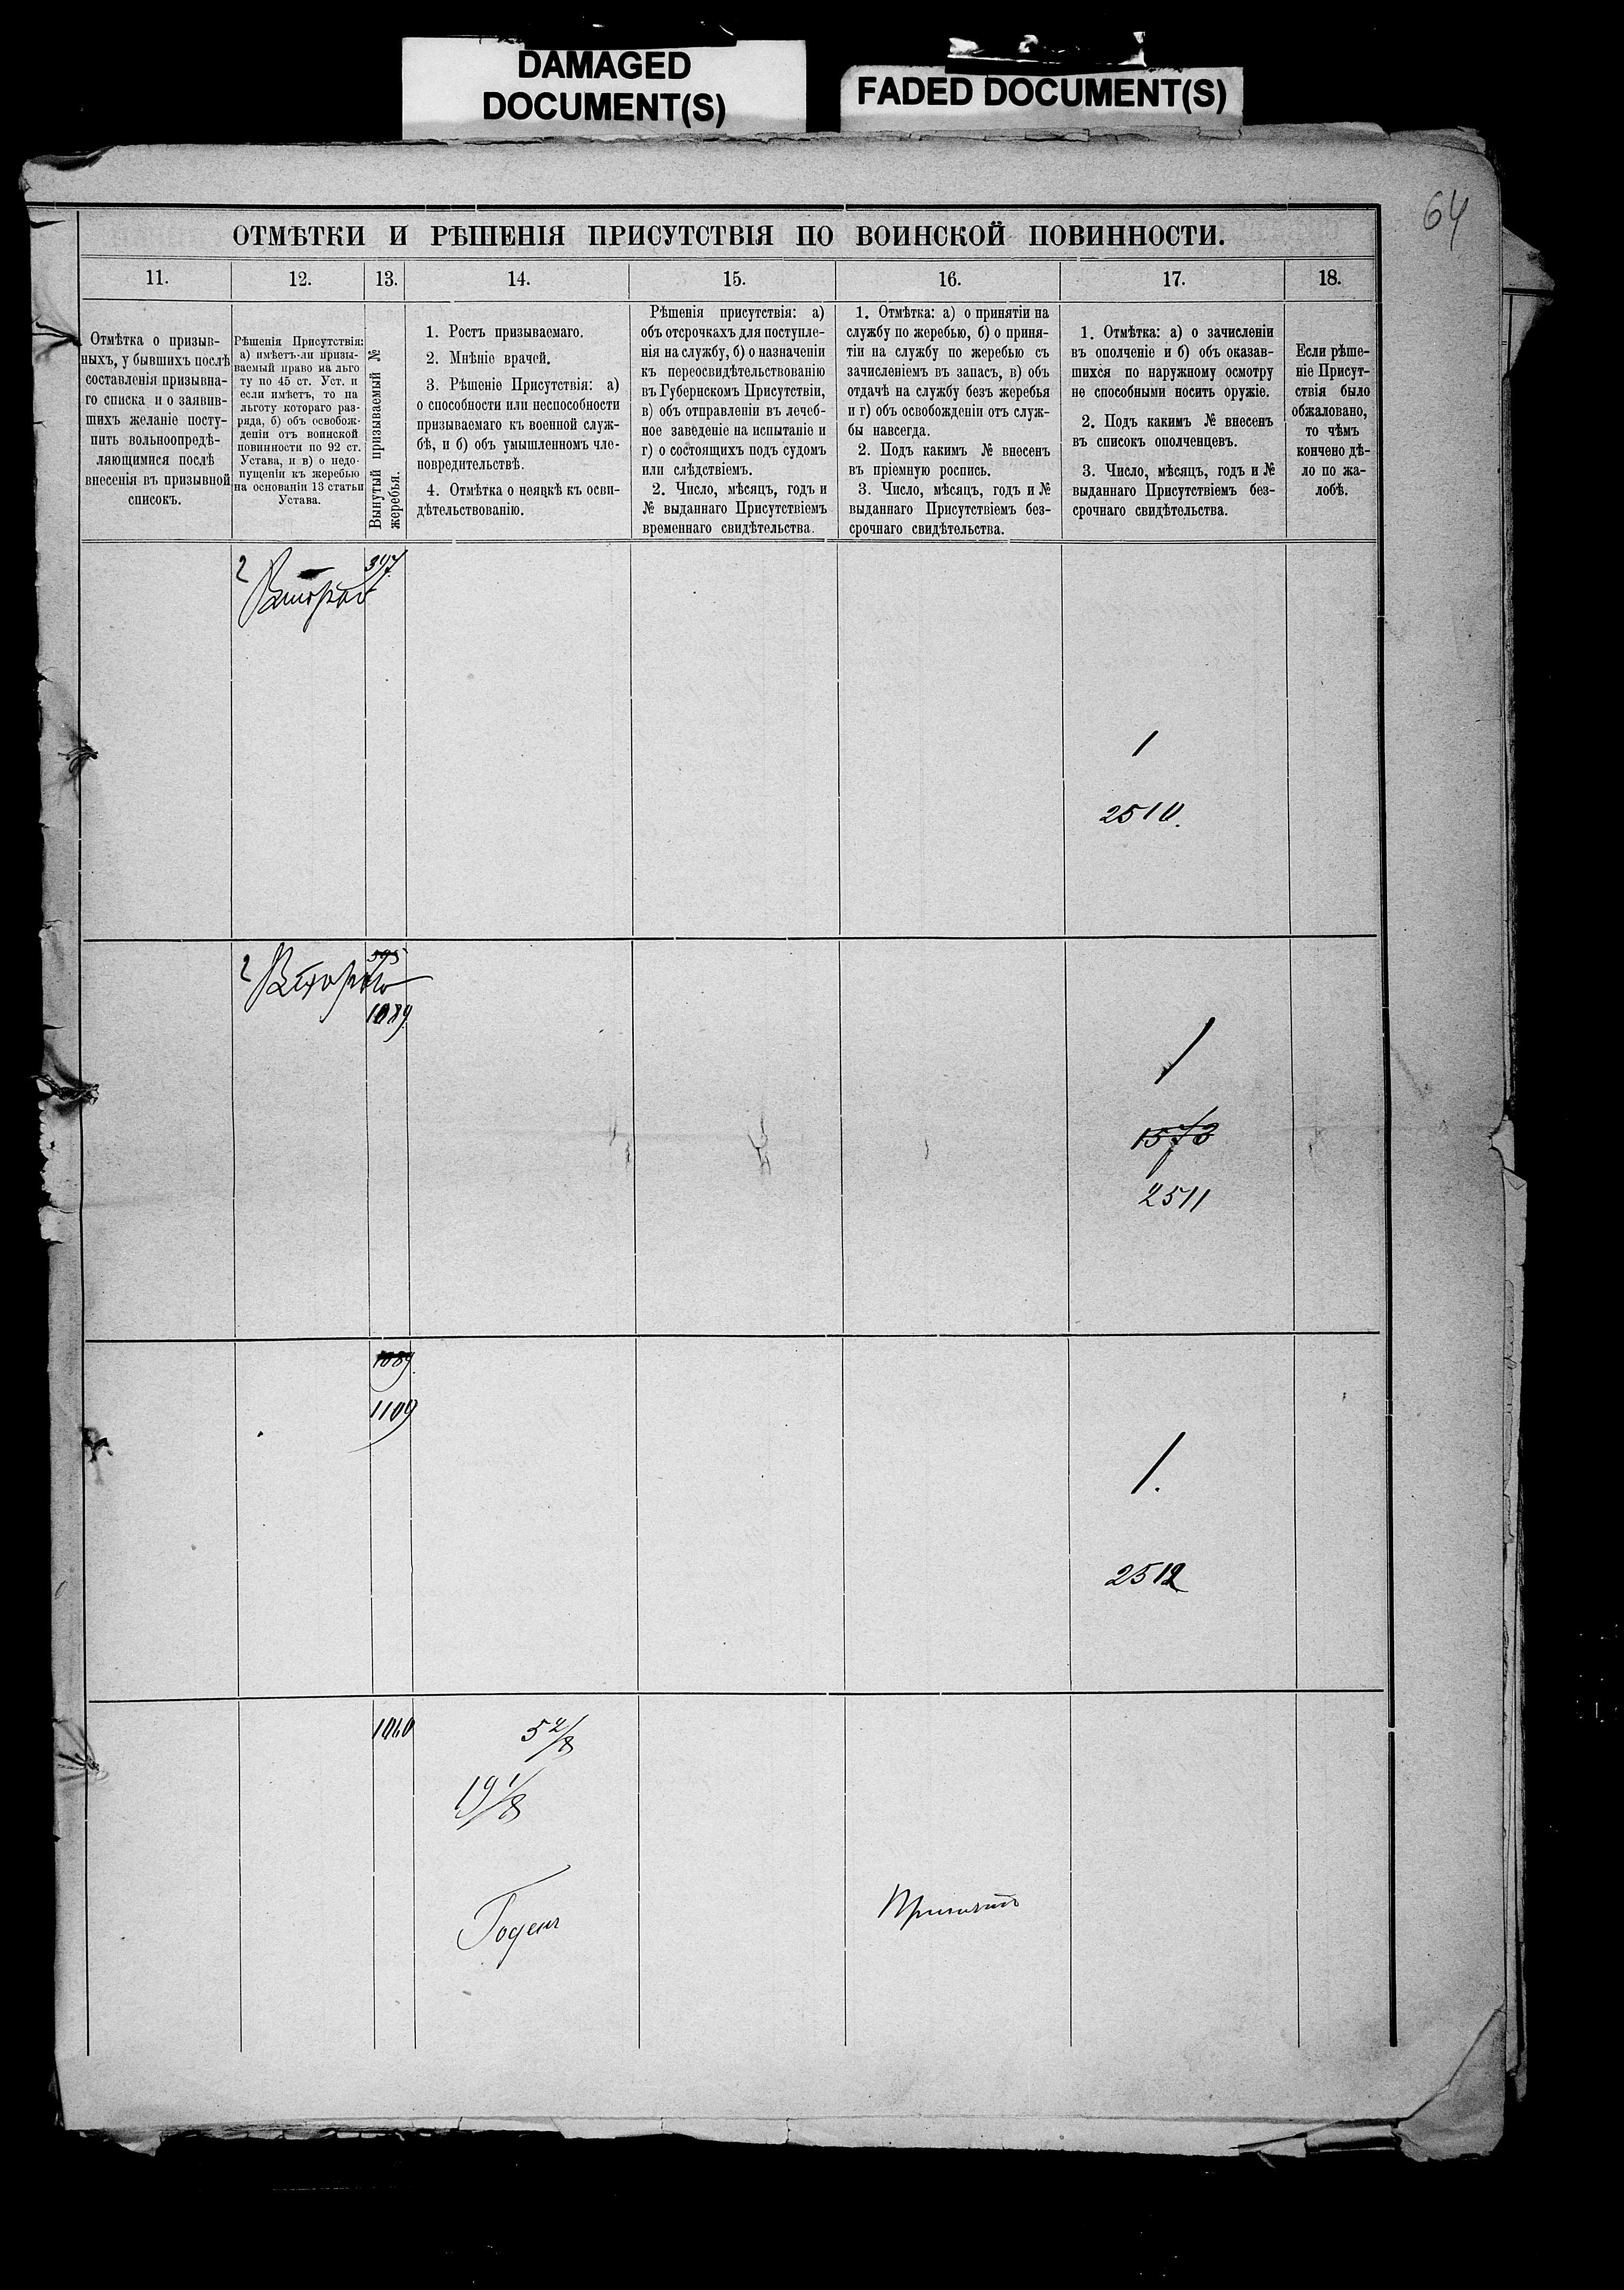 DAMAGED
DOCUMENT(S)
FADED DOCUMENT(S)
64
ОТМѢТКИ И РѢШЕНІЯ ПРИСУТСТВІЯ ПО ВОИНСКОЙ ПОВИННОСТИ.
11.
12.
13.
14.
15.
16.
17.
18.
Отмѣтка о призыв-
ныхъ, у бывшихъ послѣ
составленія призывна-
го списка и о заявив-
шихъ желаніе посту-
пить вольноопредѣ-
ляющимися послѣ
внесенія въ призывной
списокъ.
Рѣшенія Присутствія:
а) имѣетъ-ли призы-
ваемый право на льго
ту по 45 ст. Уст. и
если имѣетъ, то на
льготу котораго раз-
ряда, б) объ освобож-
деніи отъ воинской
повинности по 92 ст.
Устава, и в) о недо-
пущеніи къ жеребью
на основаніи 13 статьи
Устава.
Вынутый призываемый №
жеребья.
1. Ростъ призываемаго.
2. Мнѣніе врачей.
3. Рѣшеніе Присутствія: а)
о способности или неспособности
призываемаго къ военной служ-
бѣ, и б) объ умышленномъ чле-
новредительствѣ.
4. Отмѣтка о неявкѣ къ осви-
дѣтельствованію.
Рѣшенія присутствія: а)
объ отсрочкахъ для поступле-
нія на службу, б) о назначеніи
къ переосвидѣтельствованію
въ Губернскомъ Присутствіи,
в) объ отправленіи въ лечеб-
ное заведеніе на испытаніе и
г) о состоящихъ подъ судомъ
или слѣдствіемъ.
2. Число, мѣсяцъ, годъ и
№ выданнаго Присутствіемъ
временнаго свидѣтельства.
1. Отмѣтка: а) о принятіи на
службу по жеребью, б) о приня-
тіи на службу по жеребью съ
зачисленіемъ въ запасъ, в) объ
отдачѣ на службу безъ жеребья
и г) объ освобожденіи отъ служ-
бы навсегда.
2. Подъ какимъ № внесенъ
въ пріемную роспись.
3. Число, мѣсяцъ, годъ и №
выданнаго Присутствіемъ без-
срочнаго свидѣтельства.
1. Отмѣтка: а) о зачисленіи
въ ополченіе и б) объ оказав-
шихся по наружному осмотру
не способными носить оружіе.
2. Подъ какимъ № внесенъ
въ списокъ ополченцевъ.
3. Число, мѣсяцъ, годъ и №
выданнаго Присутствіемъ без-
срочнаго свидѣтельства.
Если рѣше-
ніе Присут-
ствія было
обжаловано,
то чѣмъ
кончено дѣ-
ло по жа-
лобѣ.
2
397
1
2510.
2
395
1089.
1
1573
2511
1089.
1109
1.
2512
1060
5 2/8
19 1/8
Годенъ
Принятъ